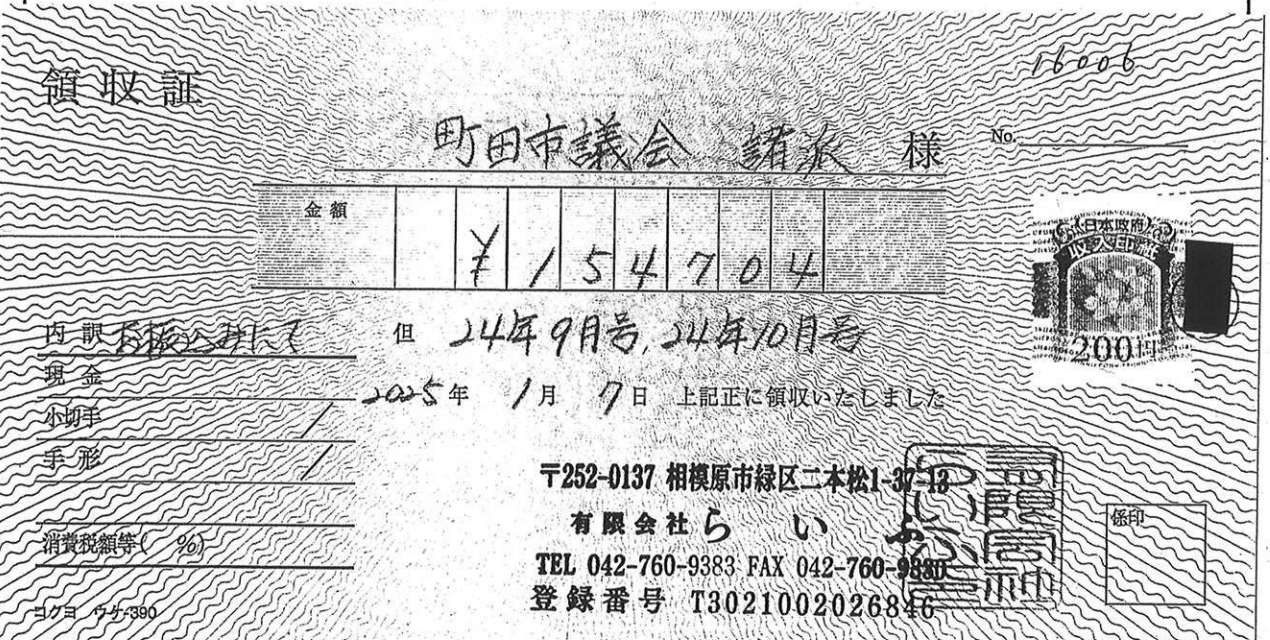 16006
領収証
町田市議会 諸派 様
No.
金額 ¥154704
日本政府
収入印紙
200円
内訳 お振込みにて
但 24年9月号,24年10月号
現金
2025年 1月 7日 上記正に領収いたしました
小切手 /
手形 /
〒252-0137 相模原市緑区二本松1-37-13
有限会社 らいふ
TEL 042-760-9383 FAX 042-760-9880
登録番号 T3021002026846
係印
消費税額等( %)
コクヨ ウケ-390